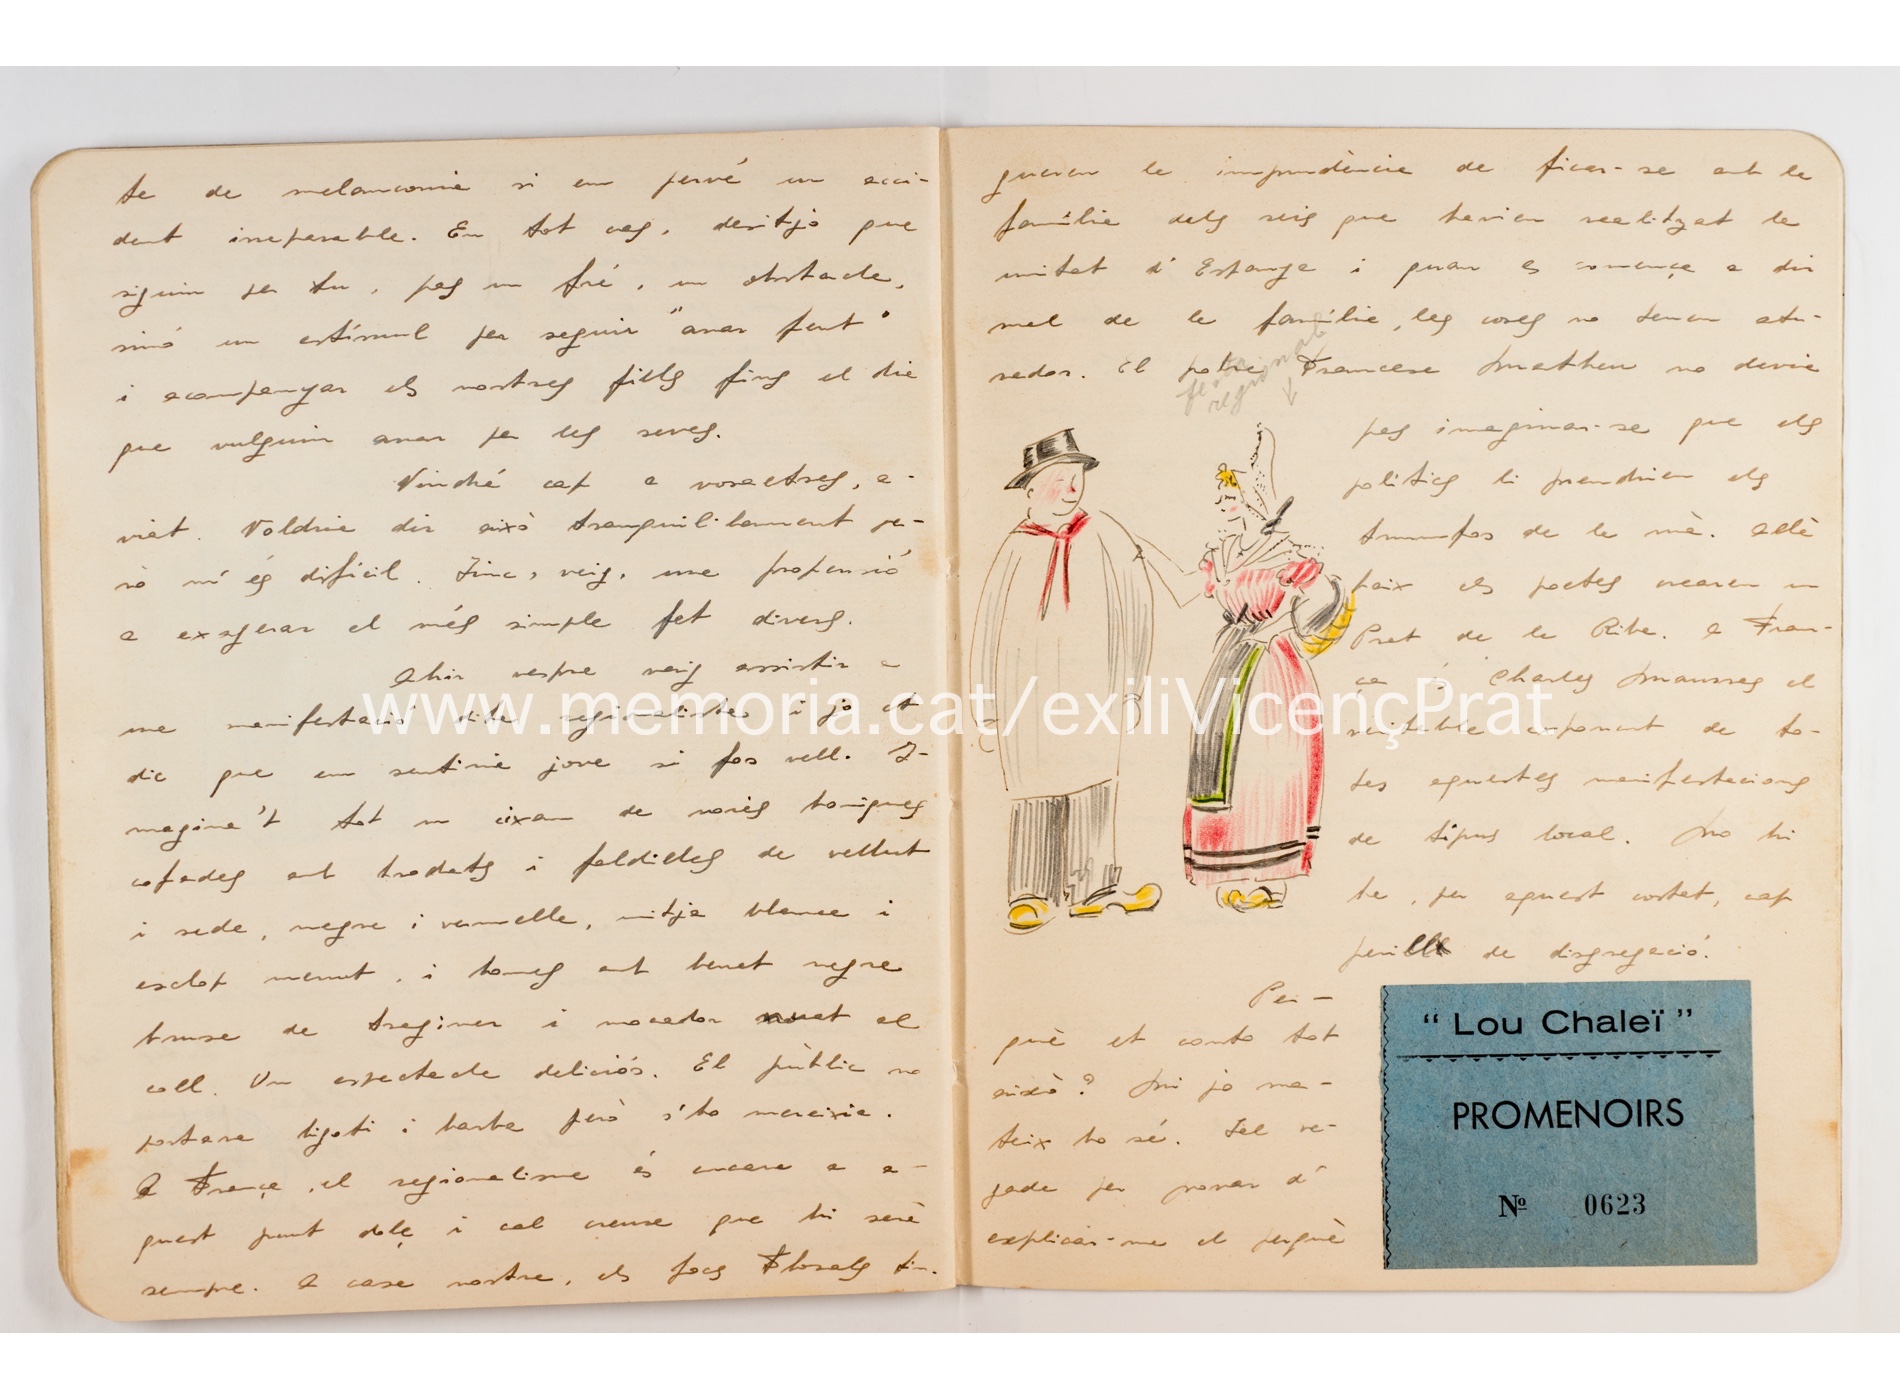 te de melanconia si em pervé un acci-
dent irreparable. En tot cas, desitjo que
siguin per tu, pas un fré, un obstacle,
sinó un estímul per seguir "anar fent"
i acompanyar els nostres fills fins el dia
que vulguin anar per les seves.
Vindré cap a vosaltres, a-
viat. Voldria dir això tranquil·lament pe-
rò m'és difícil. Tinc, veig, una propensió
a exagerar el més simple fet divers.
Ahir vespre vaig assistir a
una manifestació dita regionalista i jo et
dic que em sentiria jove si fos vell. I-
magina't tot un eixam de noies boniques
cofades amb brodats i faldilles de vellut
i seda, negra i vermella, mitja blanca i
esclop menut, i homes amb barret negre
brusa de traginer i mocador nuat al
coll. Un espectacle deliciós. El públic no
portava bigoti i barba però s'ho mereixia.
A França, el regionalisme és encara a a-
quest punt dolç i cal creure que hi serà
sempre. A casa nostra, els Jocs Florals tin-
gueren la imprudència de ficar-se amb la
família dels reis que havien realitzat la
unitat d'Espanya i quan es comença a dir
mal de la família, les coses no tenen atu-
rador. El pobre Francesc Matheu no devia
festa regional
pas imaginar-se que els
polítics li prendrien els
trumfos de la mà. Allà
baix els poetes crearen un
Prat de la Riba. A Fran-
ça és Charles Maurras el
veritable exponent de to-
tes aquestes manifestacions
de tipus local. No hi
ha, per aquest costat, cap
perill de disgregació.
Per-
què et conto tot
això? Ni jo ma-
teix ho sé. Tal ve-
gada per provar d'
explicar-me el perquè
" Lou Chaleï "
PROMENOIRS
Nº 0623
www.memoria.cat/exiliVicençPrat